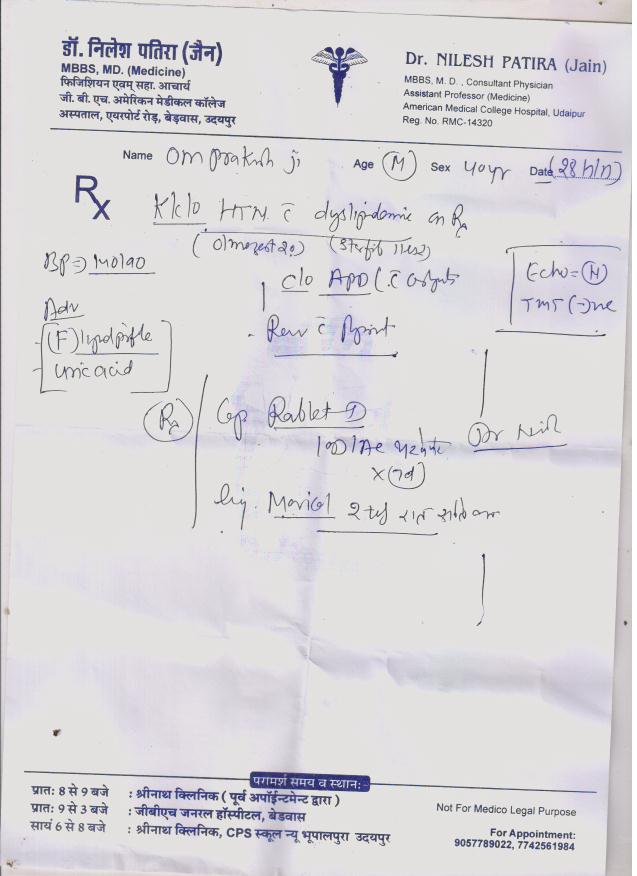 डॉ. निलेश पतिरा (जैन)
MBBS, MD. (Medicine)
फिजिशियन एवम् सहा. आचार्य
जी. बी. एच. अमेरिकन मेडीकल कॉलेज
अस्पताल, एयरपोर्ट रोड़, बेड़वास, उदयपुर
Dr. NILESH PATIRA (Jain)
MBBS, M. D. , Consultant Physician
Assistant Professor (Medicine)
American Medical College Hospital, Udaipur
Reg. No. RMC-14320
Name Om prakash ji Age (M) Sex 40yr Date
Rx
K/c/o HTN c dyslipidemia on Rx
BP=) 140/90
c/o APD
Echo = (N)
TMT (-)ve
Adv
(F) lipid profile
uric acid
Rev c Report
Rx
Cap Rablet D
1 OD
Dr Nil
2 tsf
परामर्श समय व स्थान:-
प्रात: 8 से 9 बजे : श्रीनाथ क्लिनिक ( पूर्व अपॉईन्टमेन्ट द्वारा )
प्रात: 9 से 3 बजे : जीबीएच जनरल हॉस्पीटल, बेडवास
सायं 6 से 8 बजे : श्रीनाथ क्लिनिक, CPS स्कूल न्यू भूपालपुरा उदयपुर
Not For Medico Legal Purpose
For Appointment:
9057789022, 7742561984